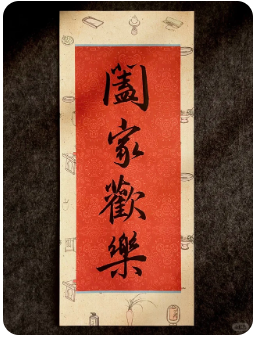 闔家歡樂